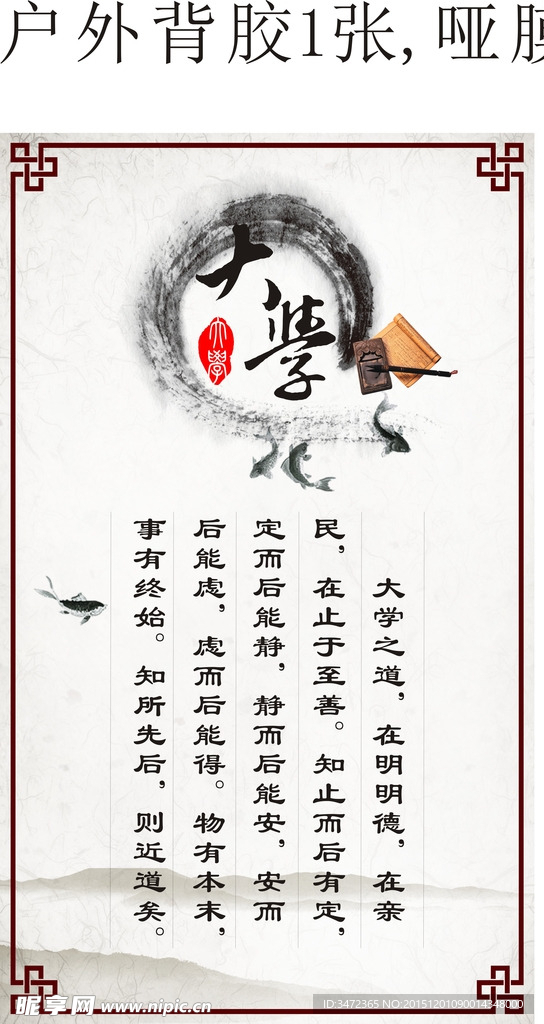 户外背胶1张,哑
大学
大學
大学之道，在明明德，在亲
民，在止于至善。知止而后有定，
定而后能静，静而后能安，安而
后能虑，虑而后能得。物有本末，
事有终始。知所先后，则近道矣。
昵享网 www.nipic.cn
ID:3472365 NO:20151201090014348000